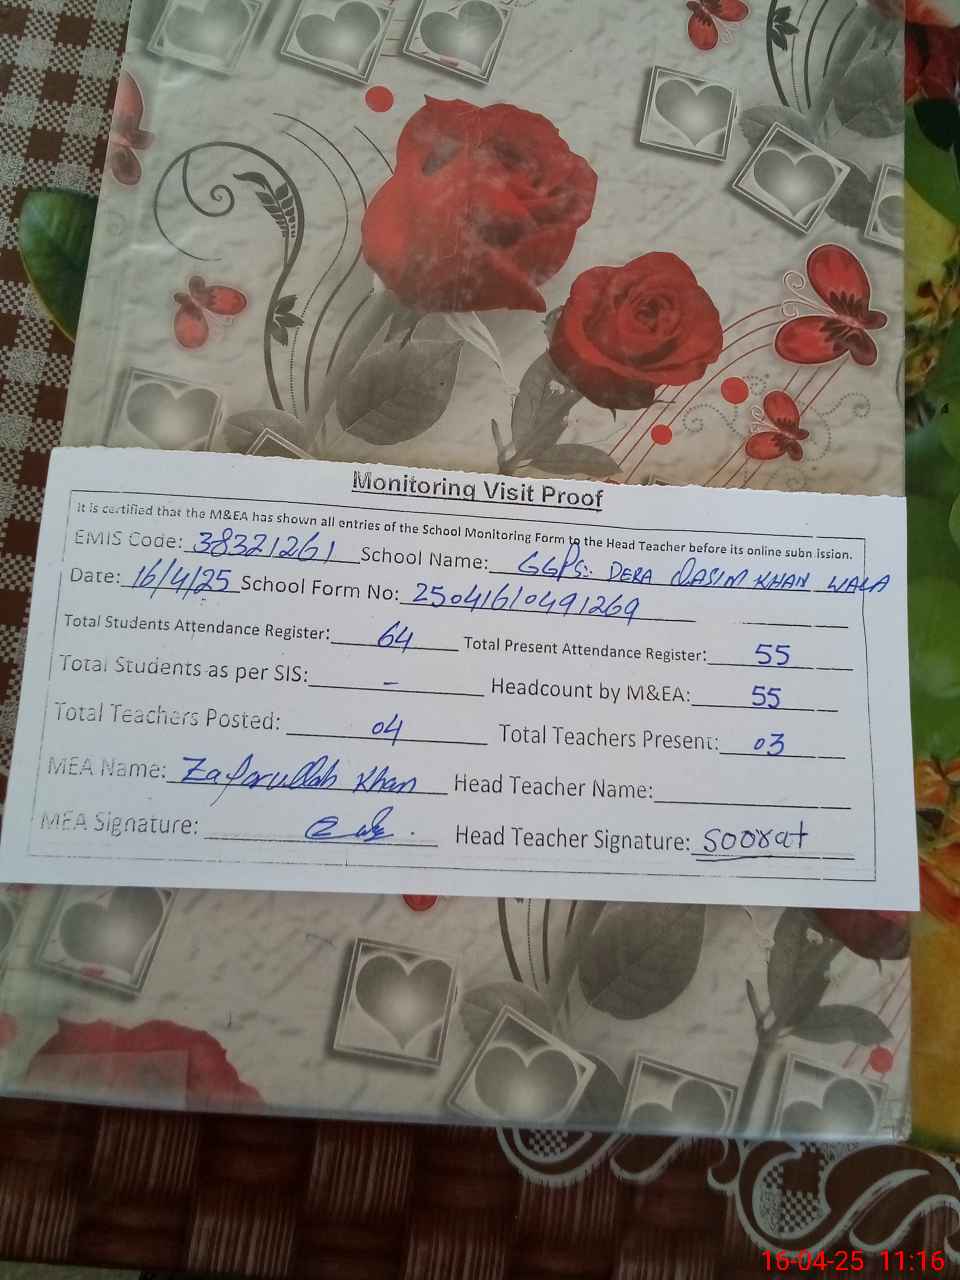 Monitoring Visit Proof
It is certified that the M&EA has shown all entries of the School Monitoring Form to the Head Teacher before its online subn ission.
EMIS Code: 38321261 School Name: GGPS: DERA QASIM KHAN WALA
Date: 16/4/25 School Form No: 25041610491269
Total Students Attendance Register: 64 Total Present Attendance Register: 55
Total Students as per SIS: - Headcount by M&EA: 55
Total Teachers Posted: 04 Total Teachers Present: 03
MEA Name: Zafarullah Khan Head Teacher Name:
MEA Signature: Head Teacher Signature: Soorat
16-04-25 11:16